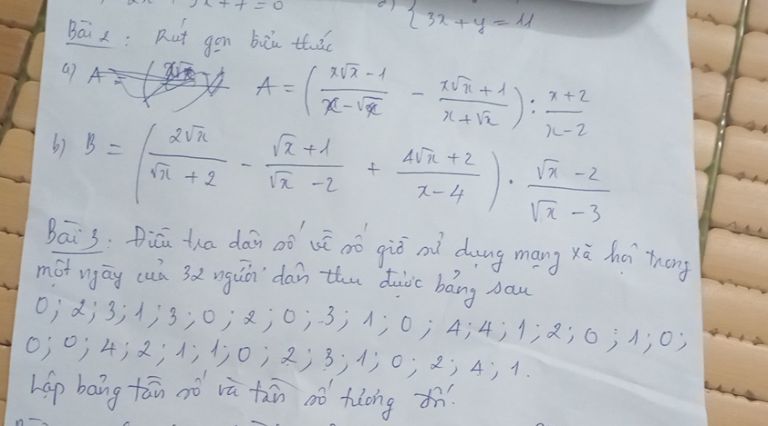 + 7 = 0
{ 3x + y = 11
Bài 2 : Rút gọn biểu thức
a) A = ( (x√x - 1)/(x - √x) - (x√x + 1)/(x + √x) ) : (x + 2)/(x - 2)
b) B = ( (2√x)/(√x + 2) - (√x + 1)/(√x - 2) + (4√x + 2)/(x - 4) ) . (√x - 2)/(√x - 3)
Bài 3 : Điều tra dân số về số giờ sử dụng mạng xã hội trong
một ngày của 32 người dân thu được bảng sau
0; 2; 3; 1; 3; 0; 2; 0; 3; 1; 0; 4; 4; 1; 2; 0; 1; 0;
0; 0; 4; 2; 1; 1; 0; 2; 3; 1; 0; 2; 4; 1.
Lập bảng tần số và tần số tương đối.